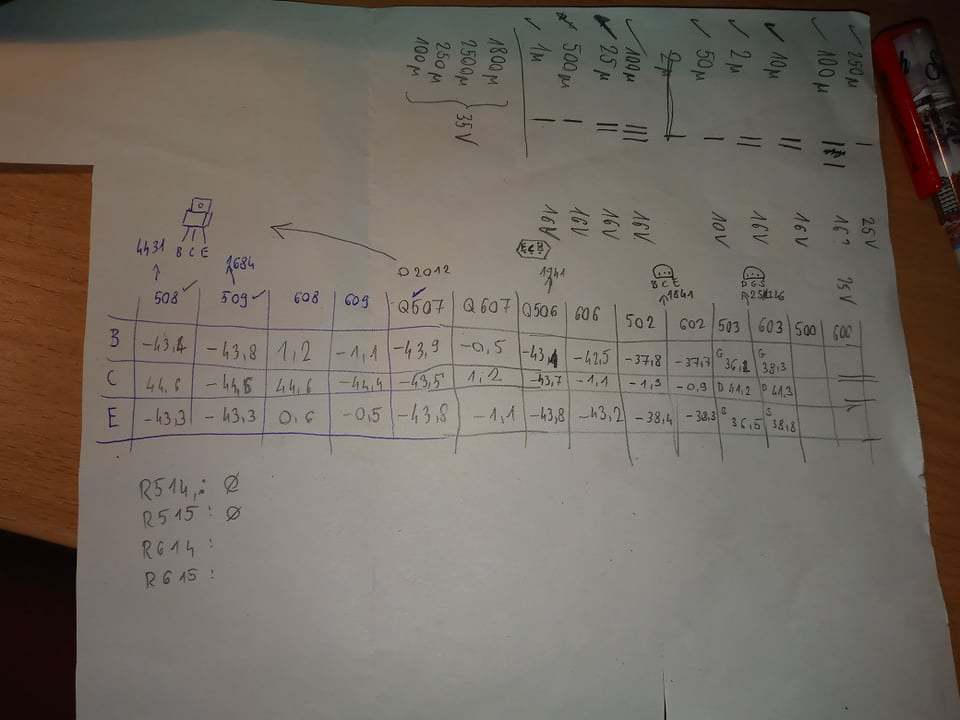 250µ
100µ
10µ
2µ
50µ
100µ
25µ
500µ
1µ
1800µ
2500µ
250µ
100µ
35V
25V
16?
35V
16V
16V
10V
16V
16V
16V
16V
B C E
4431
1684
D2012
1941
B C E
1841
D G S
508 509 608 609 Q507 Q607 Q506 606 502 602 503 603 500 600
B -43,8 1,2 -1,1 -43,9 -0,5 -42,5 -37,8 -37,7 G 36,2 G 38,3
C 44,6 44,6 -44,4 -43,5 1,2 -43,7 -1,1 -1,9 -0,9 D 41,2 D 41,3
E -43,3 -43,3 0,6 -0,5 -43,8 -1,1 -43,8 -43,2 -38,4 -38,3 S 36,5 S 38,8
R514 : Ø
R515 : Ø
R614 :
R615 :